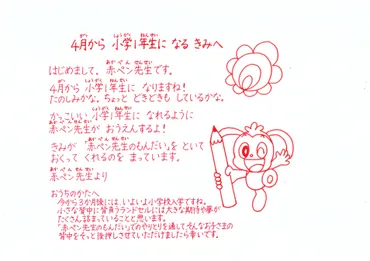 4月から 小学1年生に なる きみへ
はじめまして、赤ペン先生です。
4月から 小学1年生に なりますね!
たのしみかな。ちょっと どきどきも しているかな。
かっこいい 小学1年生に なれるように
赤ペン先生が おうえんするよ!
きみが 「赤ペン先生のもんだい」を といて
おくって くれるのを まっています。
赤ペン先生より
おうちのかたへ
今から3か月後には、いよいよ小学校入学ですね。
小さな背中に背負うランドセルには大きな期待や夢が
たくさん詰まっていることと思います。
「赤ペン先生のもんだい」でのやりとりを通して、そんなお子さまの
背中をそっと後押しさせていただけましたら幸いです。